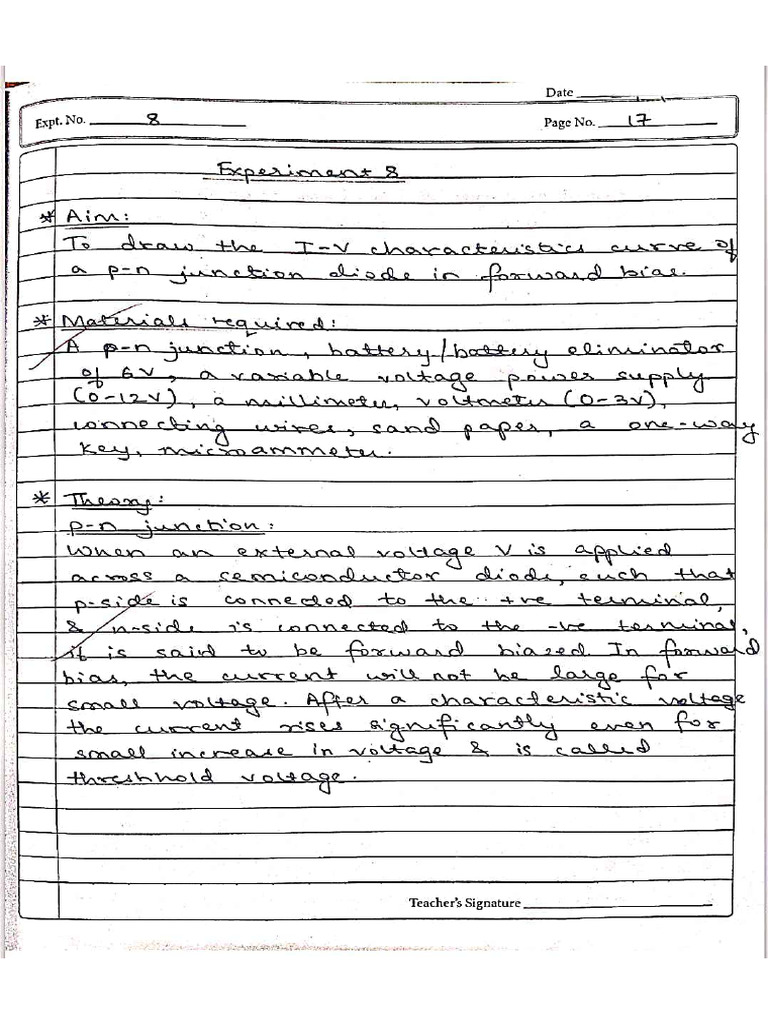 Date
Expt. No. 8
Page No. 17
Experiment 8
* Aim:
To draw the I-V characteristics curve of
a p-n junction diode in forward bias.
* Materials required:
A p-n junction, battery/battery eliminator
of 6V, a variable voltage power supply
(0-12V), a millimeter, voltmeter (0-3V),
connecting wires, sand paper, a one-way
key, microammeter.
* Theory:
p-n junction:
When an external voltage V is applied
across a semiconductor diode, such that
p-side is connected to the +ve terminal,
& n-side is connected to the -ve terminal,
it is said to be forward biased. In forward
bias, the current will not be large for
small voltage. After a characteristic voltage
the current rises significantly even for
small increase in voltage & is called
threshhold voltage.
Teacher's Signature